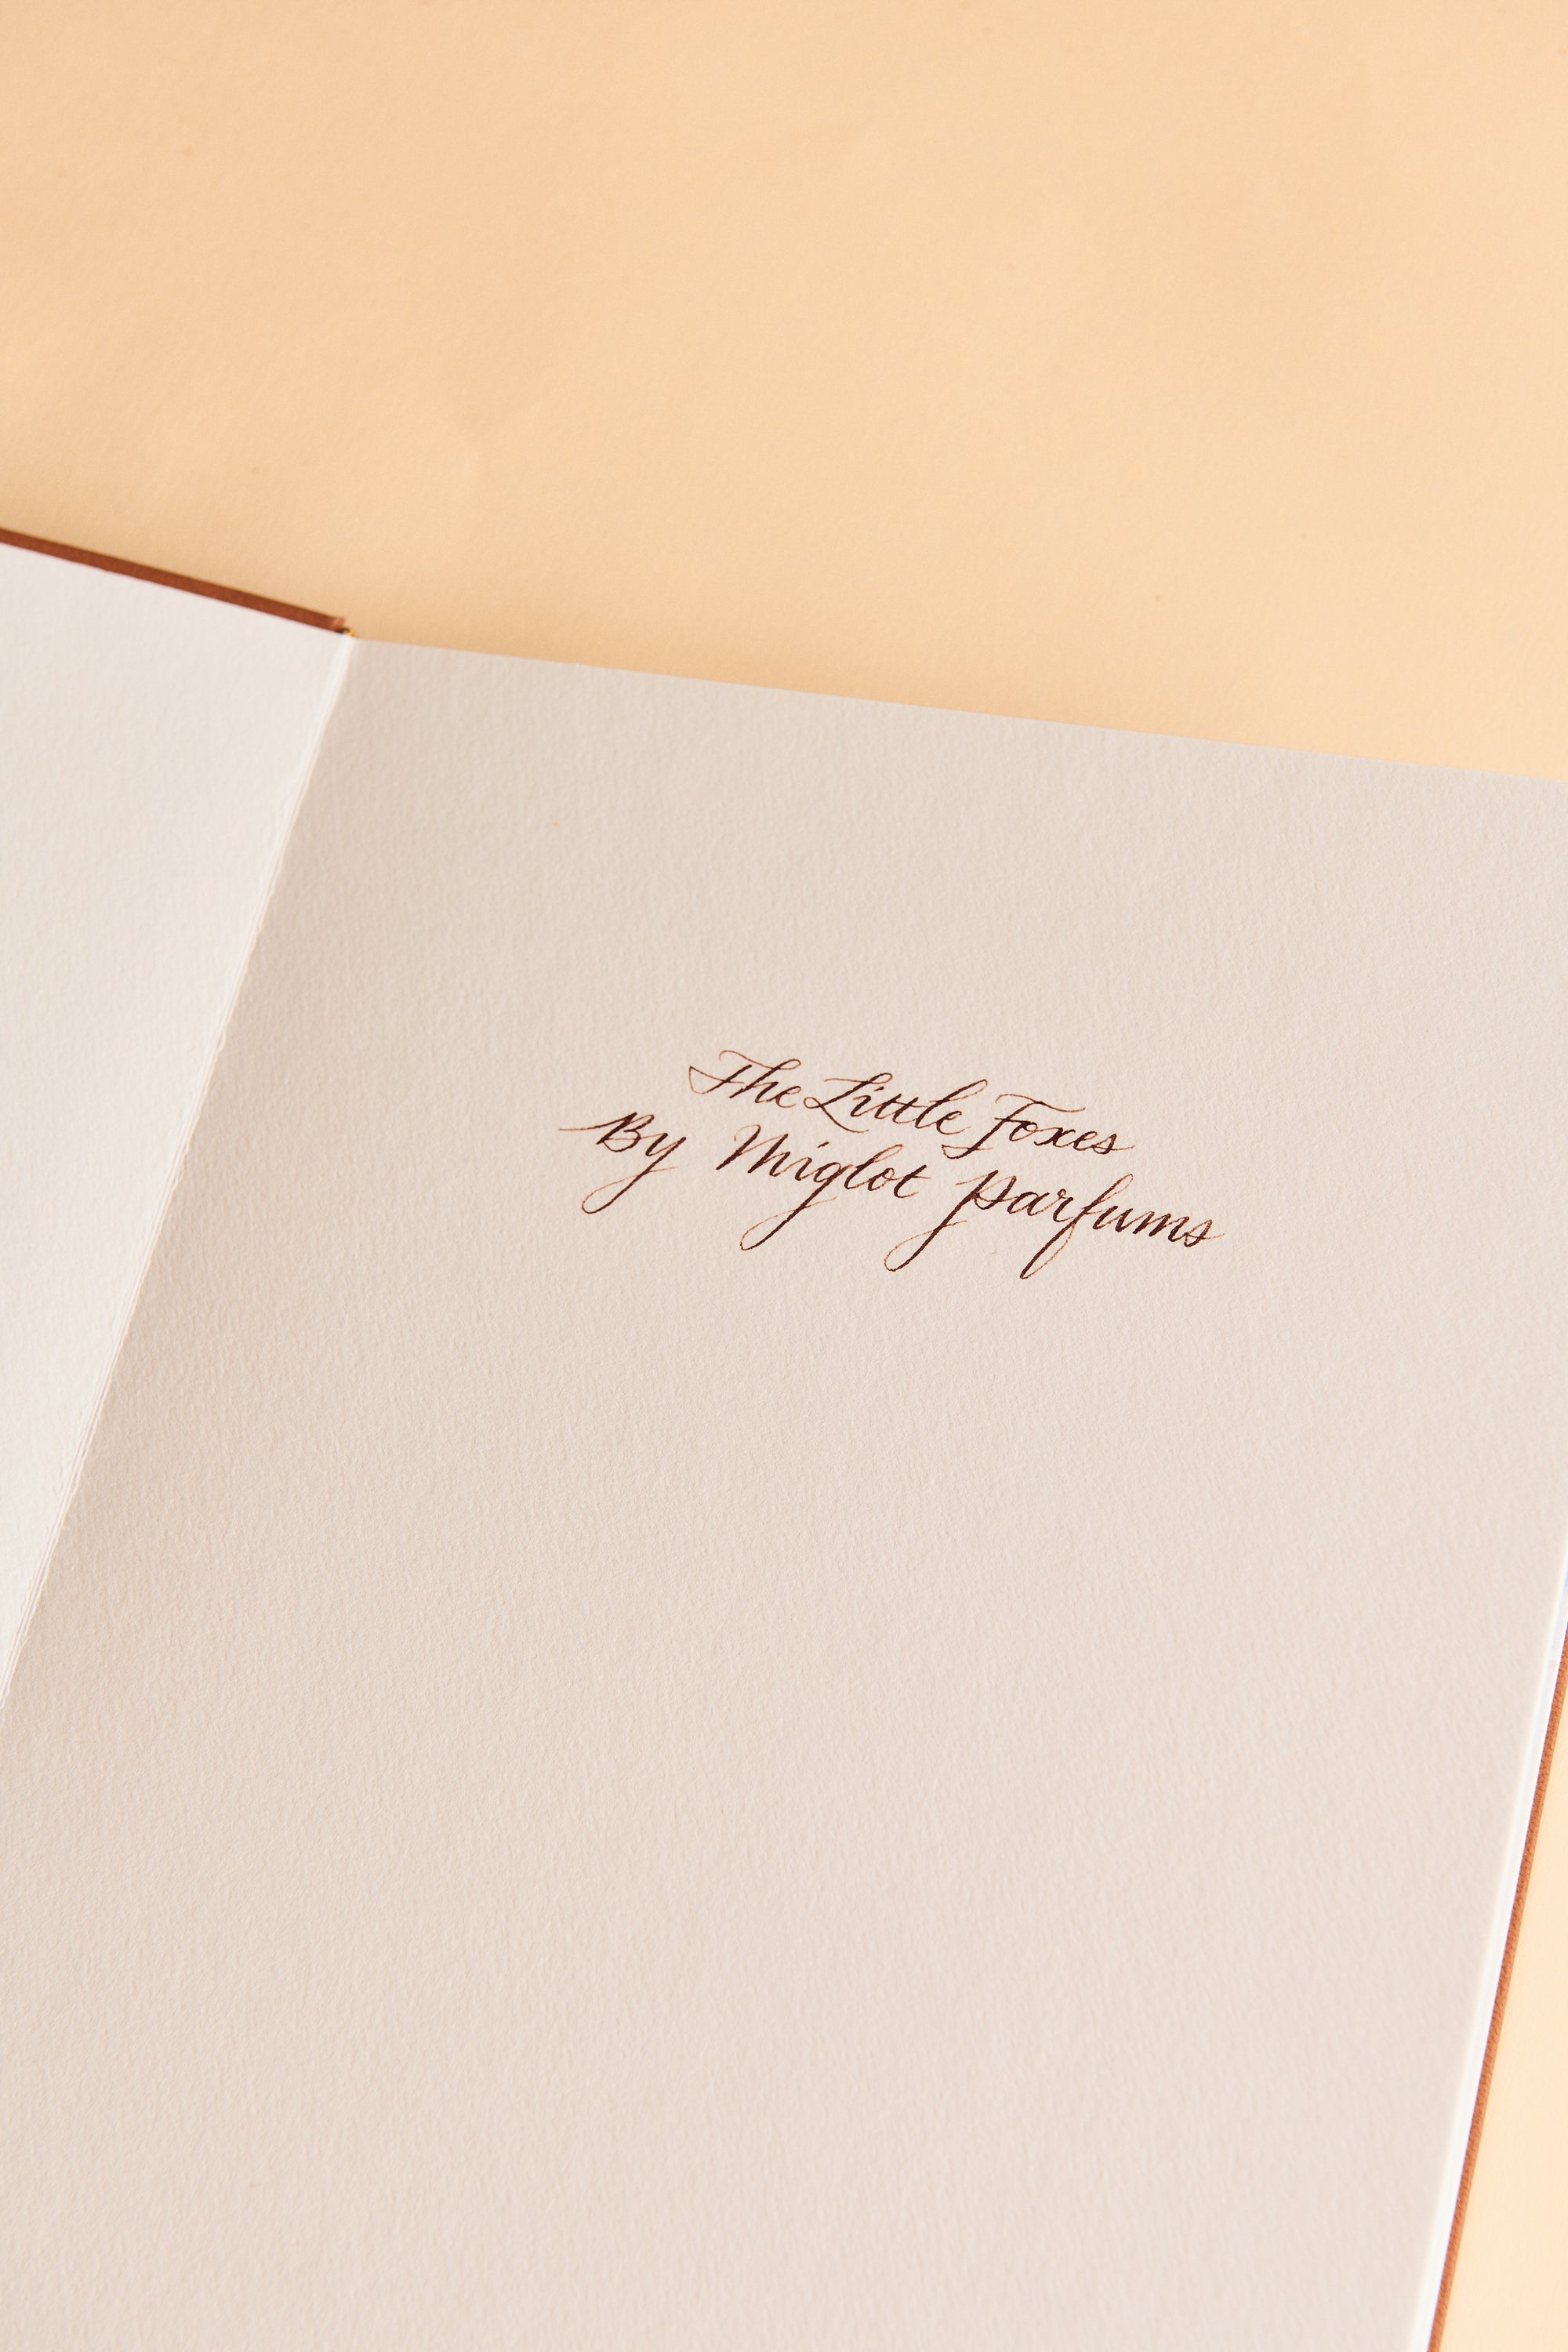 The Little Foxes
By Miglot Parfums